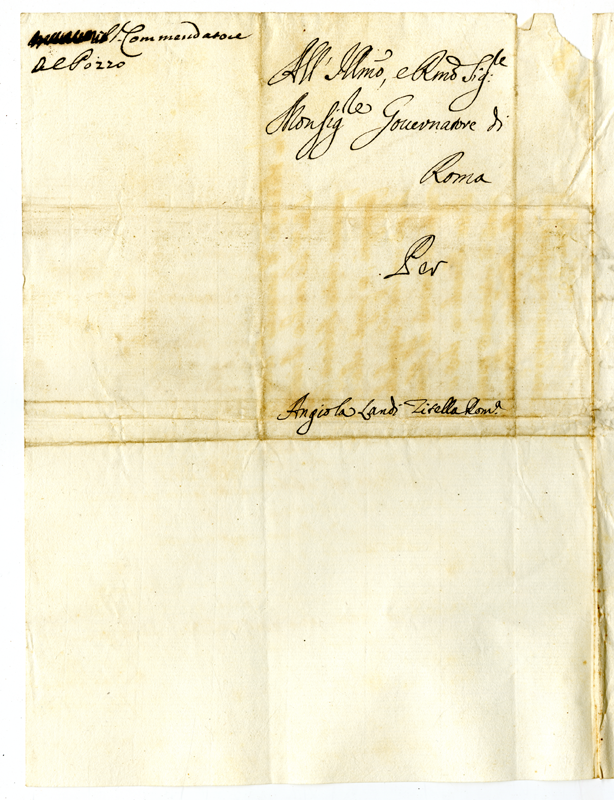 Commendatore
del Pozzo
All' Illmo, e Rmo Sig:re
Monsig.re Gouernatore di
Roma
Per
Angiola Landi Zitella Rom.a